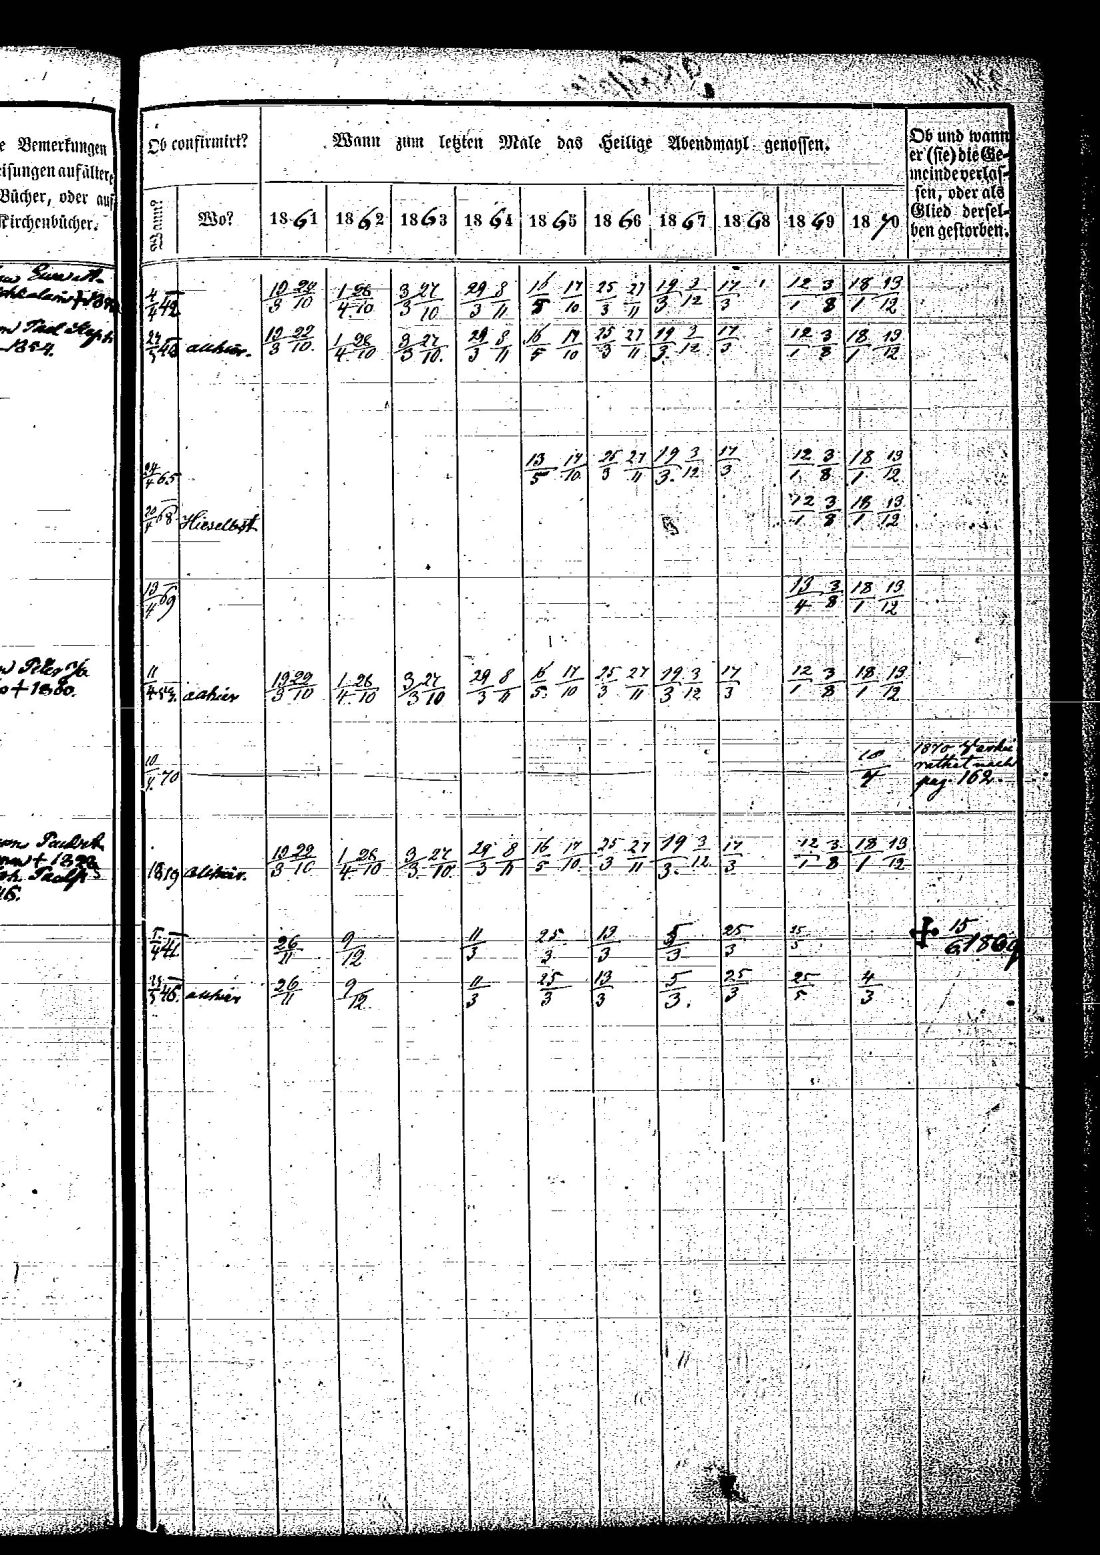 e Bemerkungen
eisungen auf älter
Bücher, oder auf
Kirchenbücher.
Ob confirmirt?
Wann?
Wo?
Wann zum letzten Male das Heilige Abendmahl genossen.
1861 1862 1863 1864 1865 1866 1867 1868 1869 1870
Ob und wann
er (sie) die Ge-
meinde verlas-
sen, oder als
Glied dersel-
ben gestorben.
4/4 42 19/3 29/10 1/4 28/10 3/3 27/10 29/3 8/11 16/5 17/10 25/3 27/11 19/3 3/12 17/3 12/1 3/8 18/1 13/12
1854.
allhier. 19/3 29/10. 1/4 28/10 3/3 27/10. 29/3 8/11 16/5 17/10 25/3 27/11 19/3. 3/12 17/3 12/1 3/8 18/1 13/12
24/4 65 13/5 17/10. 25/3 27/11 19/3. 3/12 17/3 12/1 3/8 18/1 13/12
20/4 68 Hieselbst 12/1 3/8 18/1 13/12
13/4 69 13/4 3/8 18/1 13/12
+ 1860.
11/4 53. allhier 19/3 29/10 1/4 28/10 3/3 27/10 29/3 8/11 16/5. 17/10 25/3 27/11 19/3 3/12 17/3 12/1 3/8 18/1 13/12
10/4. 70 10/4
1870 Verhei
rathet nach
pag. 162.
1819 allhier. 19/3 29/10 1/4. 28/10 3/3. 27/10. 29/3 8/11 16/5 17/10. 25/3 27/11 19/3. 3/12 17/3 12/1 3/8 18/1 13/12
5/4 41. 26/11 9/12 11/3 25/3 13/3 5/3 25/3 25/5 + 15/6 1869
allhier 26/11 9/12. 11/3 25/3 13/3 5/3. 25/3 25/5 4/3